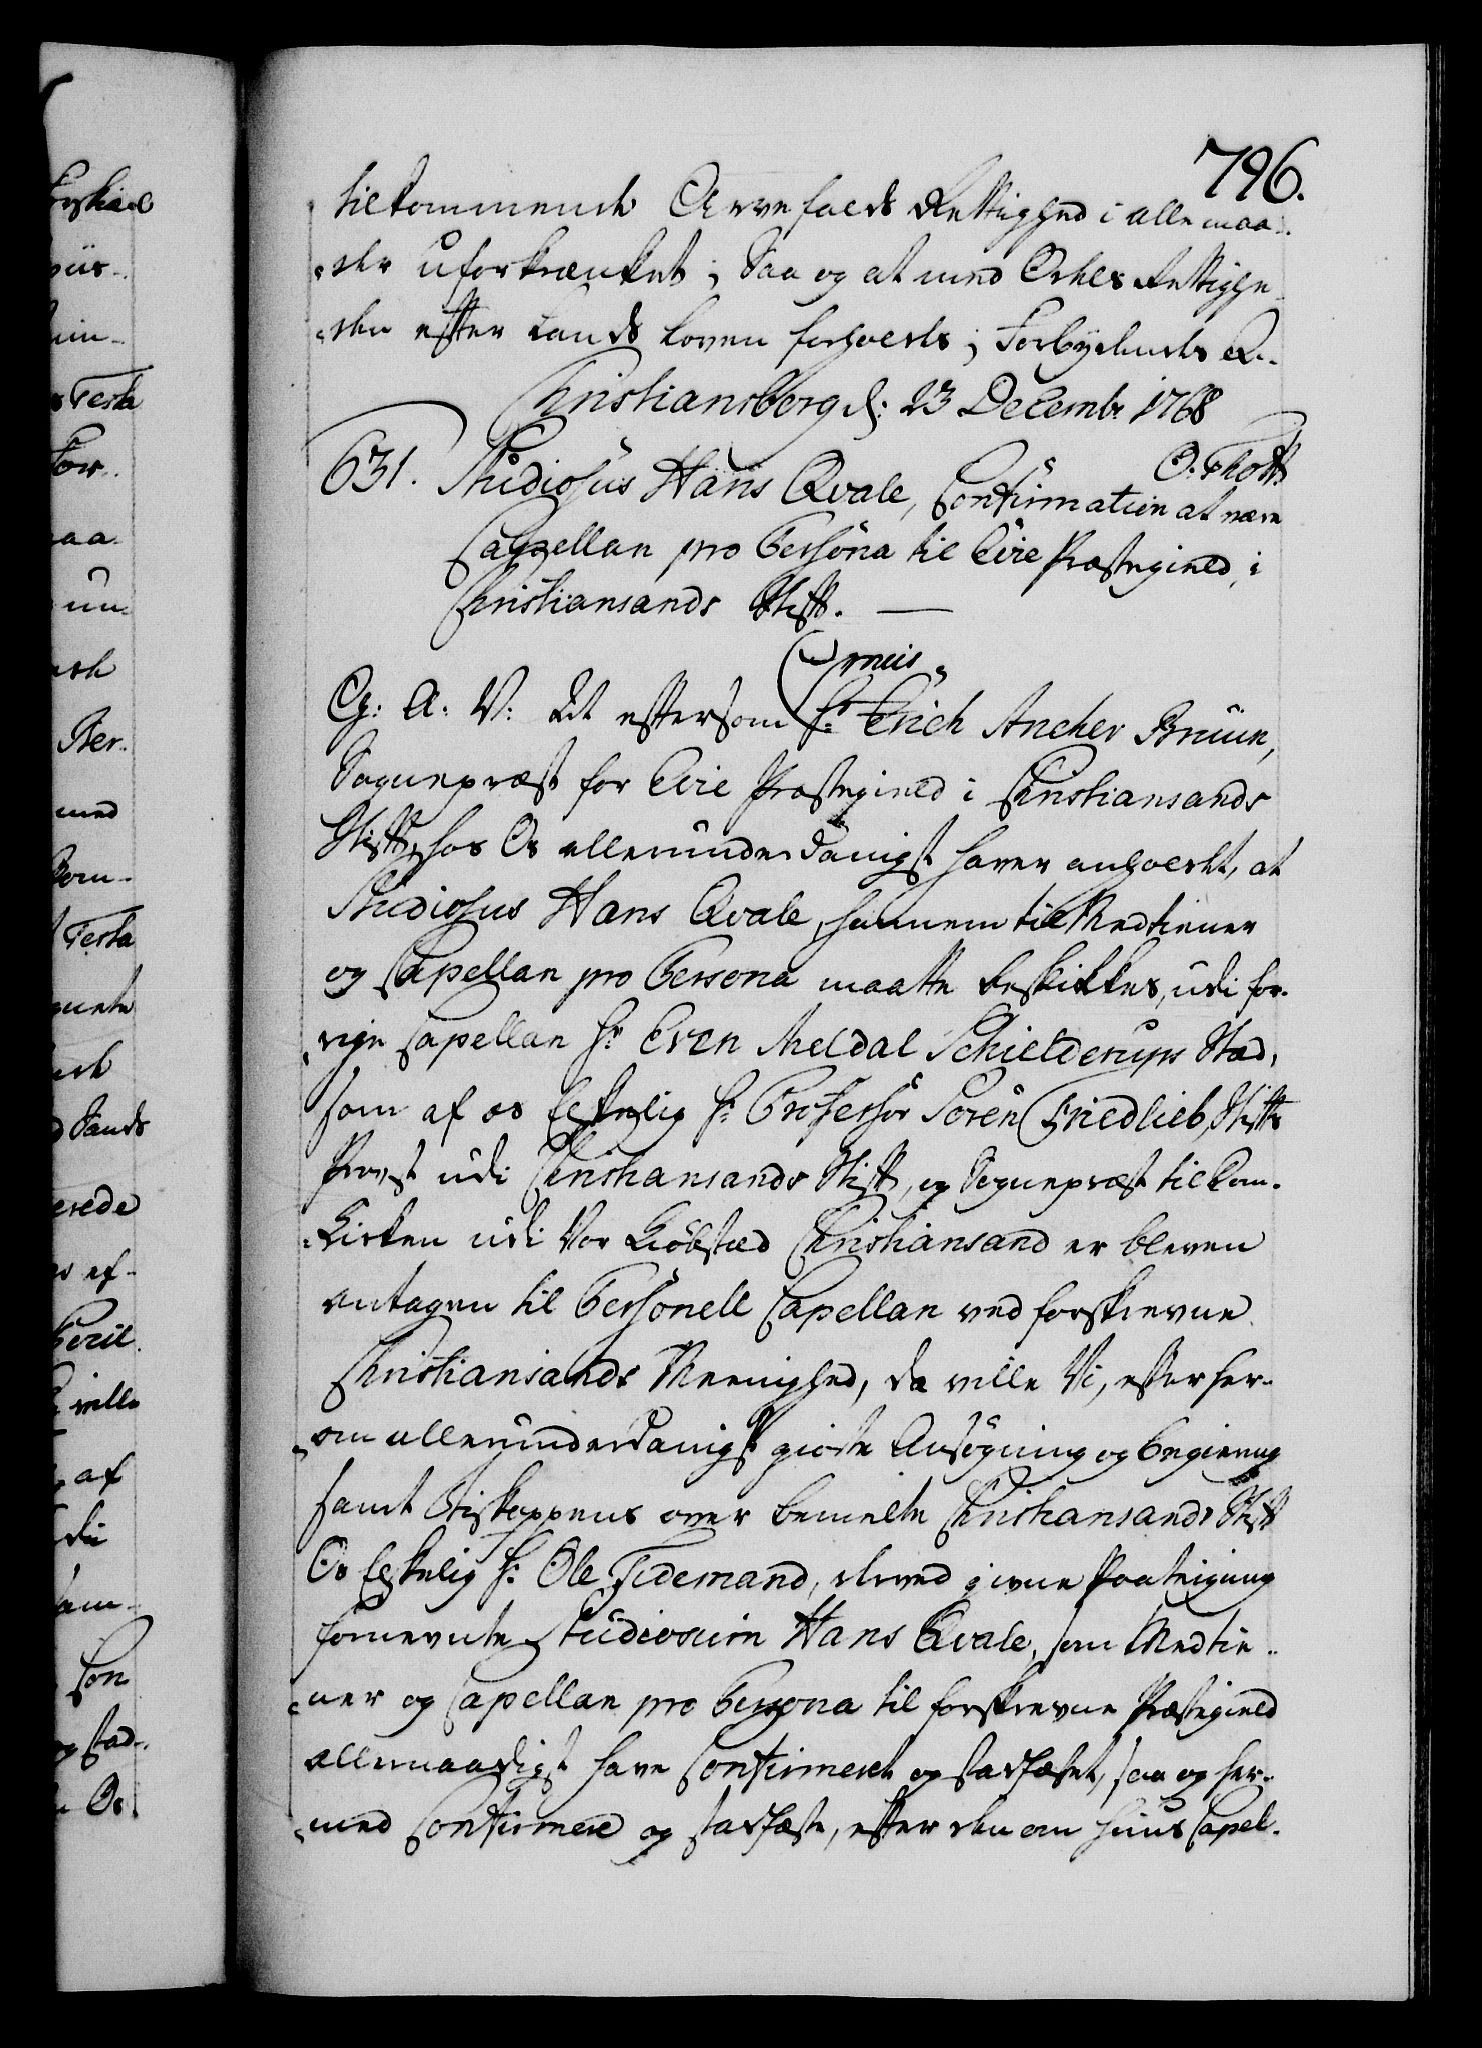 796.
tilkommende Arvefalds Rettighed i alle maa-
der uforkrænket; Saa og at med Ordes Rettighe-
den efter Lands Loven forholdes; Forbydendes &c.
Christiansborg d: 23 Decembr 1768
O. Thott
631. Studiosus Hans Qvale, Confirmation at være
Cappellan pro Persona til Evie Præstegield, i
Christiansands Stift.
C: A: V: At eftersom Hr Erich Ancher Bruun,
Sognepræst for Evie Præstegield i Christiansands
Stift, hos Os allerunderdanigst haver anholdt, at
Studiosus Hans Qvale, hannem til Medtiener
og Capellan pro Persona maatte beskikkes, udi for-
rige Capellan Hr Even Meldal Schielderups Stæd,
som af os Elskelig Hr Professor Søren Friedlieb, Stifts
Provst udi Christiansands Stift, og Sognepræst til Dom-
Kirken udi Vor Kiøbstæd Christiansand er bleven
antagen til Personell Capellan ved forskrevne
Christiansands Meenighed, da ville Vi, efter her-
om allerunderdanigst giorte Ansøgning og Begiering
samt Biskoppens over bemelte Christiansands Stift
Os Elskelig Hr: Ole Tidemand, derved givne Paategning
fornevnte Studiosum Hans Qvale, som Medtie-
ner og Capellan pro Persona til forskrevne Præstegield
allernaadigst have Confirmeret og stadfæstet, saa og her-
med Confirmere og stadfæste, efter den om Huus Capel-